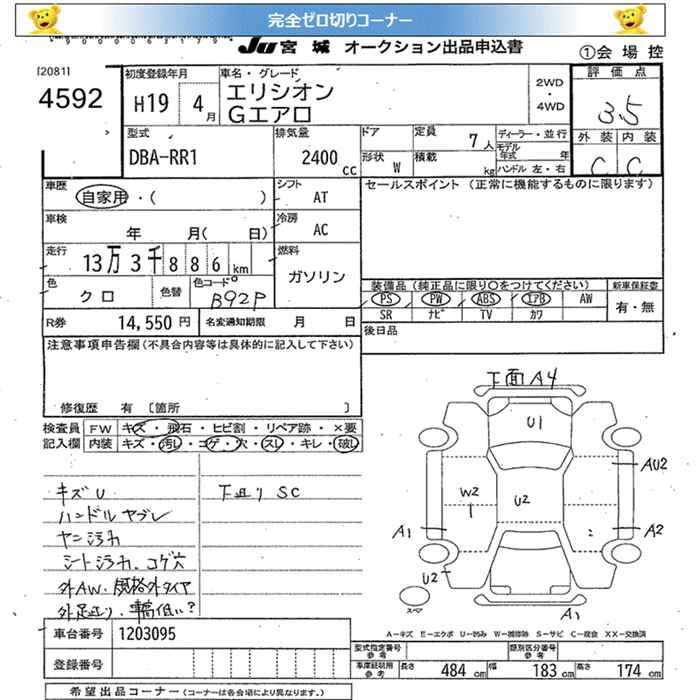 完全ゼロ切りコーナー
JU 宮城 オークション出品申込書
①会場控
[2081]
4592
初度登録年月
H19 4月
車名・グレード
エリシオン
Gエアロ
2WD
・
4WD
評価点
3.5
外装 内装
C C
型式
DBA-RR1
排気量
2400 cc
ドア
形状 W
定員 7人
積載 kg
ディーラー・並行
モデル年式 年
ハンドル 左・右
車歴
自家用・( )
シフト AT
セールスポイント (正常に機能するものに限ります)
車検 年 月( 日)
冷房 AC
走行
13万3千886km
燃料
ガソリン
色
クロ
色替
色コードNo
B92P
装備品(純正品に限り○をつけてください)
新車保証書
PS PW ABS エアB AW
SR ナビ TV カワ
有・無
R券 14,550円
名変通知期限 月 日
後日品
注意事項申告欄(不具合内容等は具体的に記入して下さい)
修復歴 有 [箇所 ]
検査員
記入欄
FW キズ・飛石・ヒビ割・リペア跡・×要
内装 キズ・汚れ・コゲ・穴・スレ・キレ・破レ
キズU
ハンドルヤブレ
ヤニ汚れ
シート汚れ、コゲ穴
外AW・規格外タイヤ
外足廻り、車高低い?
下廻りSC
下面A4
U1
AU2
W2
U2
A1
A2
U2
スペ
A1
A-キズ E-エクボ U-凹み W-補修跡 S-サビ C-腐食 XX-交換済
車台番号 1203095
登録番号
型式指定番号
参考
類別区分番号
参考
車庫証明用
参考
長さ 484cm 幅 183cm 高さ 174cm
希望出品コーナー(コーナーは各会場により異なります。)